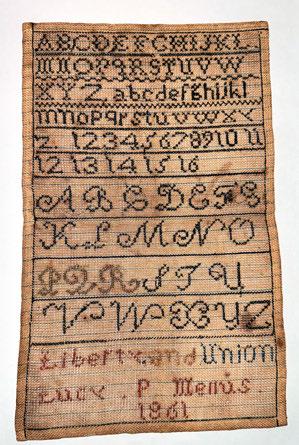 ABCDEFGHIJKL
MNOPQRSTUVW
XYZ abcdefghijkl
mnopqrstuvwxy
z 1234567891011
1213141516
ABCDEFG
KLMNO
PQRSTU
VWXYZ
Liberty and Union
Lucy . P
1861